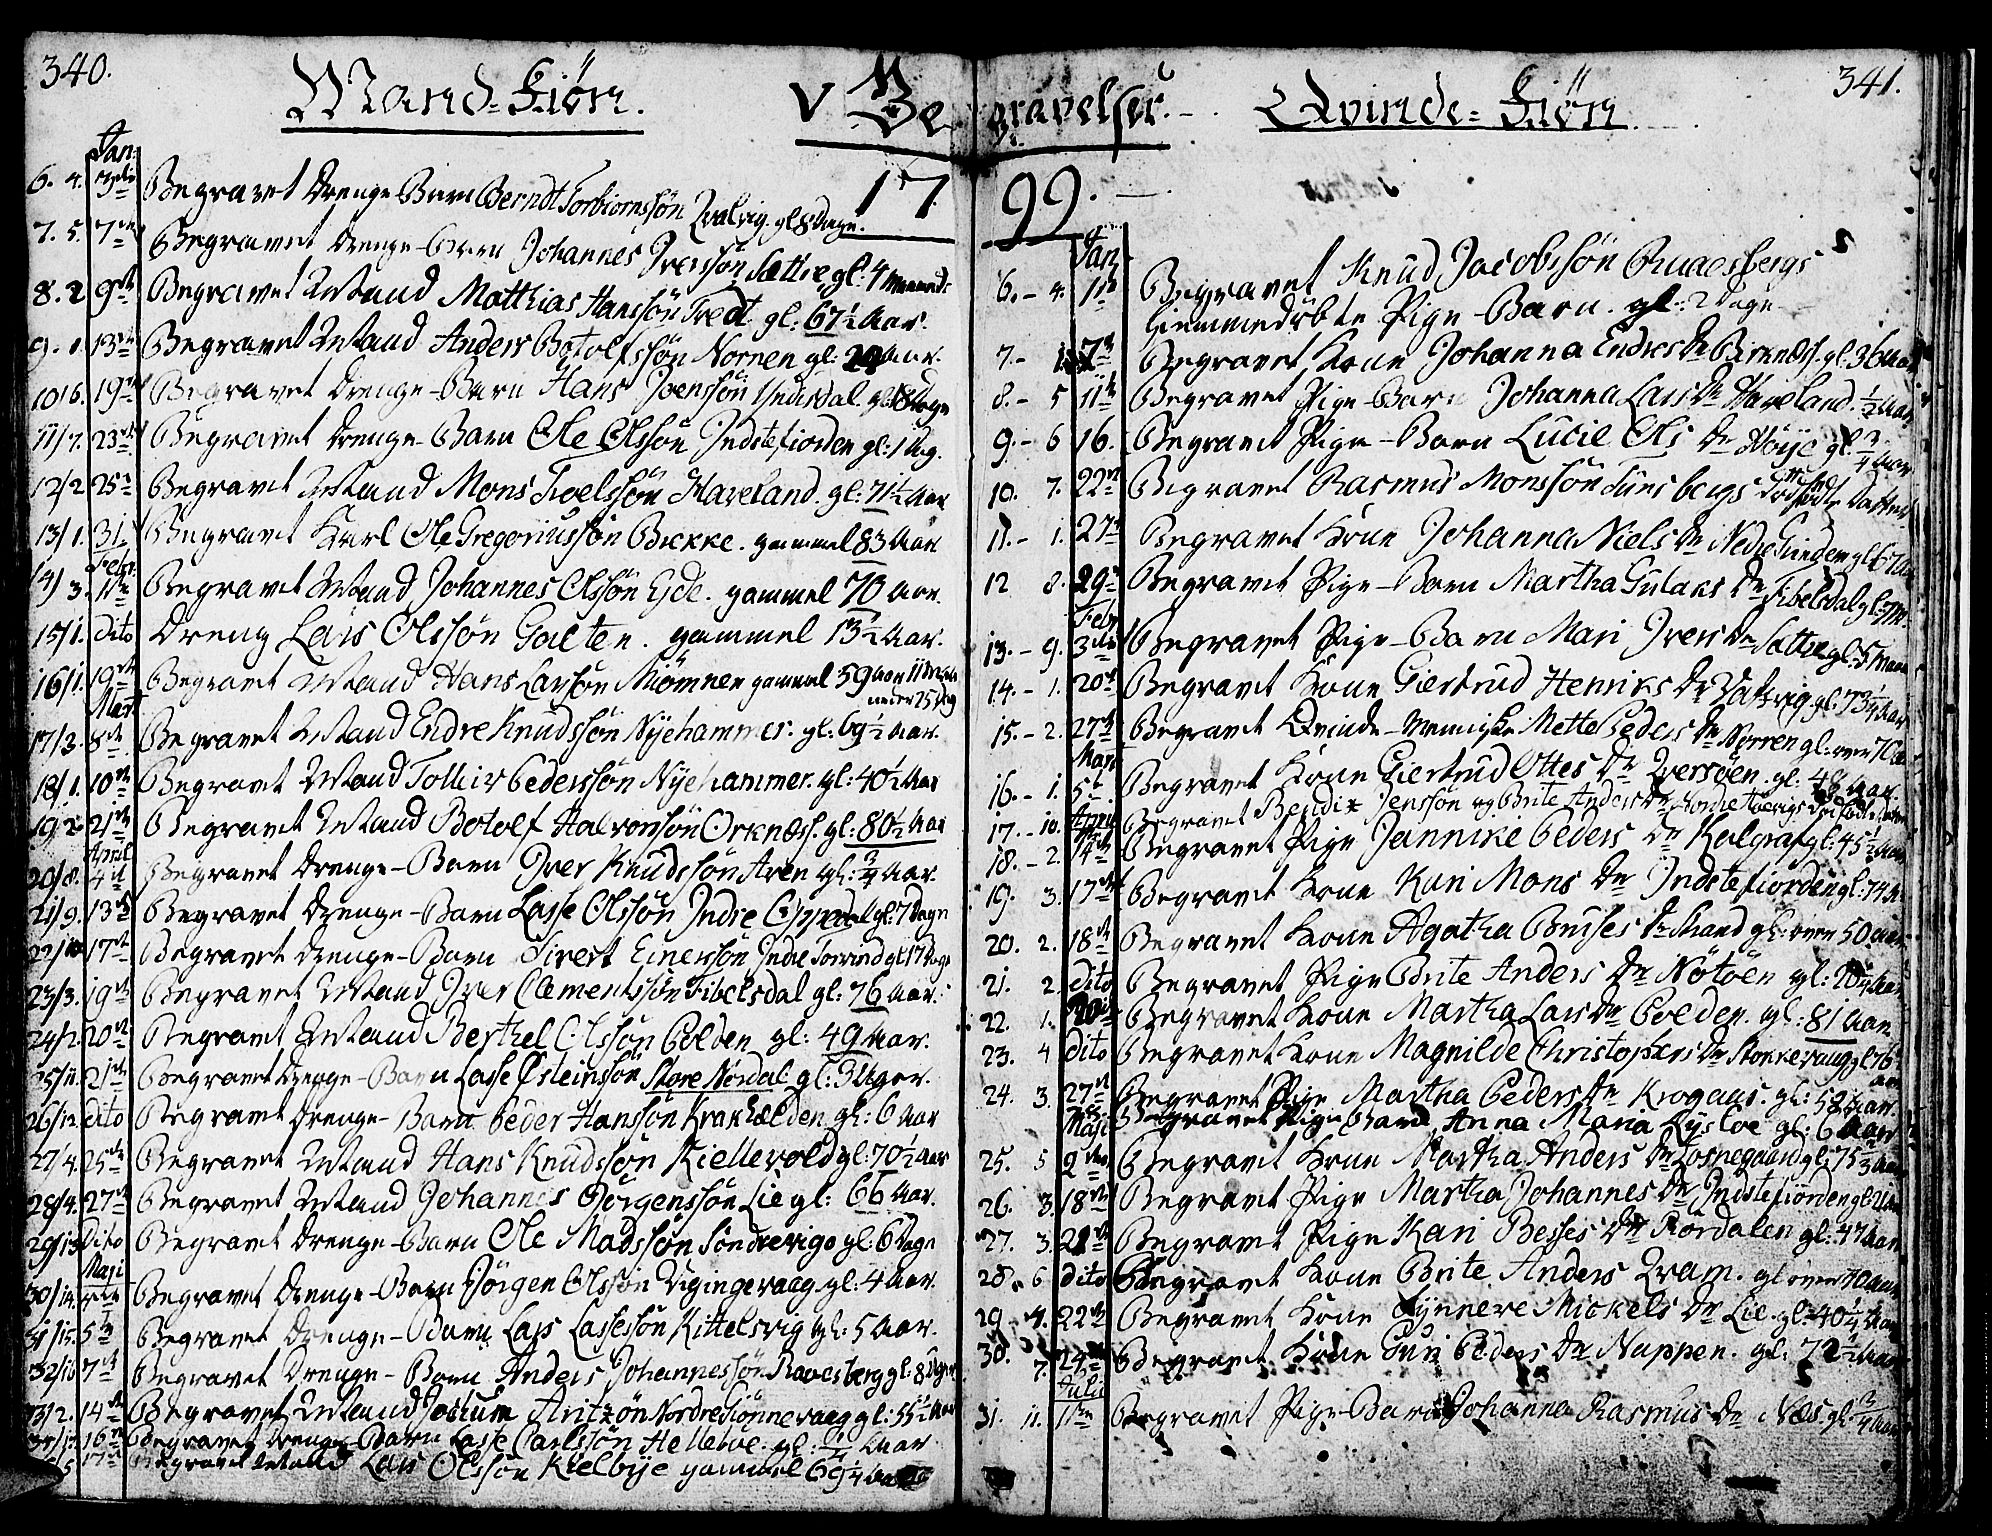 340.
Mand-Kiøn.
V Be
Jan:
6. 4. 3die Begravet Drenge-Barn Berndt Torbiornssön Qvalvig. gl. 8 Dage.
17
7. 5. 7de Begravet Drenge-Barn Johannes Iverssøn Sættre, gl: 4 Maaneder
8. 2 9de Begravet Mand Matthias Hanssön Tredt gl: 67½ Aar.
9. 1. 13de Begravet Mand Anders Botolfssön Nornen gl: Aar.
10/6. 19de Begravet Drenge-Barn Hans Joenssön Yndesdal. gl: 8 Dage
11/7. 23de Begravet Drenge-Barn Ole Olssön Indstefiorden gl: 1 Ug.
12/2 25de Begravet Mand Mons Troelssön Haveland. gl: 71½ Aar
13/1. 31. Begravet Karl Ole Gregoriussön Bekke. gammel 83 Aar
Febr.
14/3. 1ste Begravet Mand Johannes Olssön Eide. gammel 70 Aar.
15/1. dito Dreng Lars Olssøn Galten. gammel 13½ Aar.
16/1. 19de Begravet Mand Hans Larssön Miømnen gammel 59 Aar 11 Maaneder 25 Dag
Mart
17/3. 8de Begravet Mand Endre Knudssön Nÿehammer. gl: 69½ Aar.
18/1. 10de Begravet Mand Tolleiv Pederssön Nÿehammer. gl: 40½ Aar
19/2 21de Begravet Mand Botolf Halvorssön Orknæss. gl: 80½ Aar
April
20/8. 4de Begravet Drenge-Barn Iver Knudssön Aren gl: ¾ Aar.
21/9. 13de Begravet Drenge-Barn Lasse Olssøn Indre Oppedal gl: 7 Dage
22/10 17de Begravet Drenge-Barn Sivert Einerssön Indre Torvind gl: 17 Dage
23/3. 19de Begravet Mand Iver Clementssön Fibelsdal gl: 76 Aar.
24/2. 20de Begravet Mand Berthel Olssøn Polden gl: 49 Aar.
25/11. 21de Begravet Drenge-Barn Lasse Østeinssön Store Nordal gl: 3 Uger.
26/12. dito Begravet Drenge-Barn Peder Hanssøn Krakhælden gl: 6 Aar
27/4. 25de Begravet Mand Hans Knudssøn Kiellevold gl: 70½ Aar
28/4. 27de Begravet Mand Johannes Jörgenssön Lie gl: 66 Aar.
29/13 Dito Begravet Drenge-Barn Ole Madssøn Söndrevigo gl: 6 Dage
Maji
30/14. Begravet Drenge-Barn Jörgen Olssøn Digingevaag gl: 4 Aar.
31/15. 5te Begravet Drenge-Barn Lars Lassessön Kittelsvig gl: 5 Aar.
32/16 7de Begravet Drenge-Barn Anders Johannessön Ravesberg gl: 8 Uger
33/2. 14de Begravet Mand Jochum Nordre Tiønnevaag gl: 55½ Aar
16de Begravet Drenge-Barn Lasse Carlssøn Helletve. gl: ½ Aar
17de Begravet Mand Lars Olssøn Kielbÿe gammel 69¼ Aar
341.
gravelser.
Qvinde-Kiøn
99.
Jan
6. - 4. 1ste Begravet Knud Jacobssön Ruaesbergs
hiemmedøbte Pige-Barn. gl: 2 Dage
7. - 1. 7de Begravet Kone Johanna Endres Dr Birknæss. gl: 36 Aar
8. - 5 11te Begravet Pige-Barn Johanna Lars Dr Haveland. ½ Aar
9. - 6 16. Begravet Pige-Barn Lucie Ols Dr Höÿe gl ¾ Aar
10. 7. 22de Begravet Rasmus Monssön Tunsbergs dødfødte Datter
11. - 1. 27de Begravet Kone Johanna Niels Dr Nedre Grinden gl: 67 Aar
12 8. 29de Begravet Pige-Barn Martha Gulaks Dr Fibelsdal gl: 7 M.
Febr
13. - 9. 3die Begravet Pige-Barn Mari Ivers Dr Sættre gl: 5 Maan
14. - 1. 20de Begravet Kone Giertrud Henriks Dr Vatsvig gl: 73¼ Aar
15. - 2. 27de Begravet Qvinde-Menniske Mette Peders Dr Norren gl: over 70
Mart
16. - 1. 5te Begravet Kone Giertrud Ottes Dr Qversöen. gl: 48 Aar
17. - 10. Begravet Bendix Jenssøn og Brite Anders Dr dødfødte
April
18. - 2. 14de Begravet Pige Jannike Peders Dr Kalgraf gl: 45½ Aar
19. 3. 17de Begravet Kone Kari Mons Dr Indstefiorden gl: 74 Aar
20. 2. 18de Begravet Kone Agatha Buises Dr Strand gl: over 50 Aar
21. 2. dito Begravet Pige Brite Anders Dr Nötöen gl: Aar
22. 1. 20de Begravet Kone Martha Lars Dr Polden. gl: 81 Aar
23. 4 dito Begravet Kone Magnilde Christophers Dr Stokkevaag gl: 76 Aar
24. 3. 27de Begravet Pige Martha Peders Dr Krogaas. gl: 58 Aar.
Begravet Pige-Barn Anna Maria Lÿsloe gl: 6 Aar
Maji
25. 5 9de Begravet Kone Martha Anders Dr Losnegaard gl: 75 Aar
26. 3. 18de Begravet Pige Martha Johannes Dr Indstefiorden gl: Aar
27. 3. 21de Begravet Pige Kari Besses Dr Rördalen gl: 47 Aar
28. 6 dito Begravet Kone Brite Anders Qvam. gl over 70 Aar
29 4. 22de Begravet Kone Sÿnneve Mickels Dr Lie. gl: 40¼ Aar
30. 7. 24de Begravet Kone Guri Peders Dr Nappen. gl: 72½ Aar
Julii
31. 11. Begravet Pige-Barn Johanna Rasmus Dr Næs gl: ¾ Aar